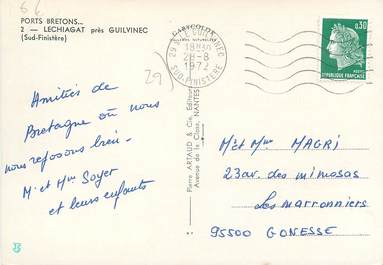 PORTS BRETONS...
2 - LECHIAGAT près GUILVINEC
(Sud-Finistère)
29
29 LE GUILVINEC
18H30
28-8
1972
SUD-FINISTERE
0,50
REPUBLIQUE FRANÇAISE
Amitiés de
Bretagne où nous
nous reposons bien -
M. et Mme Soyer
et leurs enfants
Pierre ARTAUD & Cie, Editeurs
Avenue de la Close, NANTES
Mr et Mme MAGRI
23 av. des mimosas
Les marronniers
95500 GONESSE